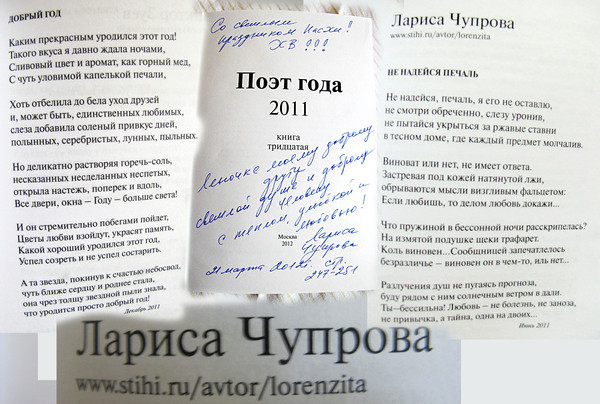 ДОБРЫЙ ГОД
Каким прекрасным уродился этот год!
Такого вкуса я давно ждала ночами,
Сливовый цвет и аромат, как горный мед,
С чуть уловимой капелькой печали,
Хоть отбелила до бела уход друзей
и, может быть, единственных, любимых,
слеза добавила соленый привкус дней,
полынных, серебристых, лунных, пыльных.
Но деликатно растворяя горечь-соль,
несказанных несделанных неспетых,
открыла настежь, поперек и вдоль,
Все двери, окна — Году — больше света!
И он стремительно побегами пойдет,
Цветы любви взойдут, украсят память,
Какой хороший уродился этот год,
Успел созреть и не успел состарить.
А та звезда, покинув к счастью небосвод,
чуть ближе сердцу и роднее стала,
она чрез толщу звездной пыли знала,
что уродится просто добрый год!
Декабрь 2011
Со светлым
праздником Пасхи!
ХВ !!!
Поэт года
2011
книга
тридцатая
Леночке моему доброму
другу
светлой душе и доброму
человеку
с теплом, улыбкой и
любовью!
Москва
2012
Лариса
Чупрова
21 марта 2012г.
стр.
247-251
Лариса Чупрова
www.stihi.ru/avtor/lorenzita
НЕ НАДЕЙСЯ ПЕЧАЛЬ
Не надейся, печаль, я его не оставлю,
не смотри обреченно, слезу уронив,
не пытайся укрыться за ржавые ставни
в тесном доме, где каждый предмет молчалив.
Виноват или нет, не имеет ответа.
Застревая под кожей натянутой лжи,
обрываются мысли визгливым фальцетом:
Если любишь, то делом любовь докажи...
Что пружиной в бессонной ночи раскрипелась?
На измятой подушке щеки трафарет.
Коль виновен...Сообщницей запечатлелось
безразличье — виновен он в чем-то, иль нет...
Разлучения душ не пугаясь прогноза,
буду рядом с ним солнечным ветром в дали.
Ты—бессильна! Любовь — не болезнь, не заноза,
не привычка, а тайна, одна на двоих...
Июнь 2011
Лариса Чупрова
www.stihi.ru/avtor/lorenzita